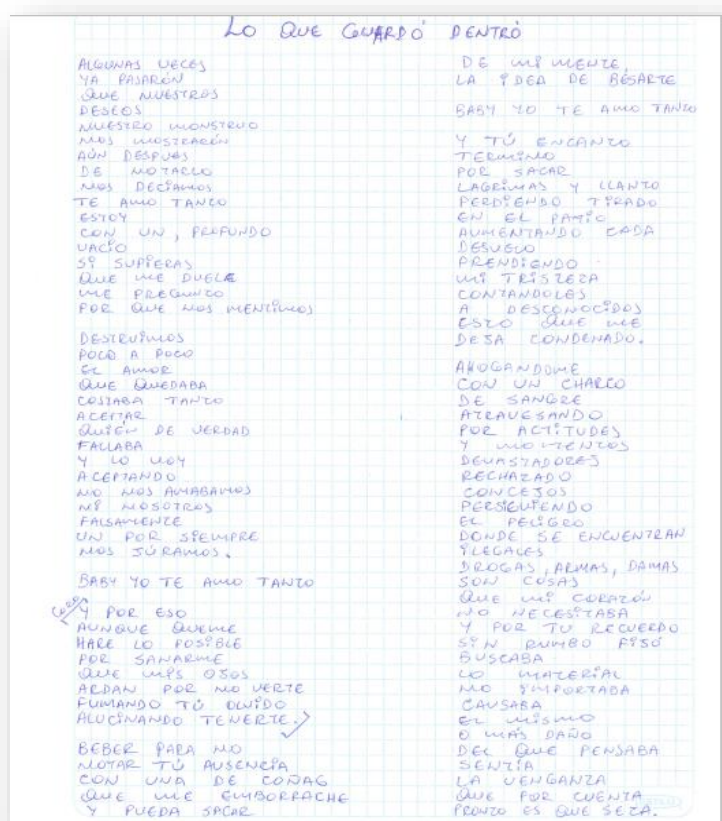 LO QUE GUARDÓ DENTRÓ
ALGUNAS VECES
YA PASARÓN
QUE NUESTROS
DESEOS
NUESTRO MONSTRUO
NOS MOSTRARÓN
AÚN DESPUES
DE NOTARLO
NOS DECÍAMOS
TE AMO TANTO
ESTOY
CON UN, PROFUNDO
VACÍO
SI SUPIERAS
QUE ME DUELE
ME PREGUNTO
POR QUE NOS MENTIMOS
DESTRUIMOS
POCO A POCO
EL AMOR
QUE QUEDABA
COSTABA TANTO
ACEPTAR
QUIÉN DE VERDAD
FALLABA
Y LO VOY
ACEPTANDO
NO NOS AMABAMOS
NI NOSOTROS
FALSAMENTE
UN POR SIEMPRE
NOS JÚRAMOS.
BABY YO TE AMO TANTO
CORO
Y POR ESO
AUNQUE QUEME
HARE LO POSIBLE
POR SANARME
QUE MIS OJOS
ARDAN POR NO VERTE
FUMANDO TÚ OLVIDO
ALUCINANDO TENERTE.
BEBER PARA NO
NOTAR TÚ AUSENCIA
CON UNA DE COÑAG
QUE ME EMBORRACHE
Y PUEDA SACAR
DE MI MENTE,
LA IDEA DE BESARTE
BABY YO TE AMO TANTO
Y TÚ ENCANTO
TERMINO
POR SACAR
LAGRIMAS Y LLANTO
PERDIENDO TIRADO
EN EL PATIO
AUMENTANDO CADA
DESVELO
PRENDIENDO
MI TRISTEZA
CONTANDOLES
A DESCONOCIDOS
ESTO QUE ME
DEJA CONDENADO.
AHOGANDOME
CON UN CHARCO
DE SANGRE
ATRAVESANDO
POR ACTITUDES
Y MOMENTOS
DEVASTADORES
RECHAZADO
CONCEJOS
PERSIGUIENDO
EL PELIGRO
DONDE SE ENCUENTRAN
ILEGALES
DROGAS, ARMAS, DAMAS
SON COSAS
QUE MI CORAZÓN
NO NECESITABA
Y POR TU RECUERDO
SIN RUMBO FIJO
BUSCABA
LO MATERIAL
NO IMPORTABA
CAUSABA
EL MISMO
O MÁS DAÑO
DEL QUE PENSABA
SENTÍA
LA VENGANZA
QUE POR CUENTA
PRONTO ES QUE SEZA.